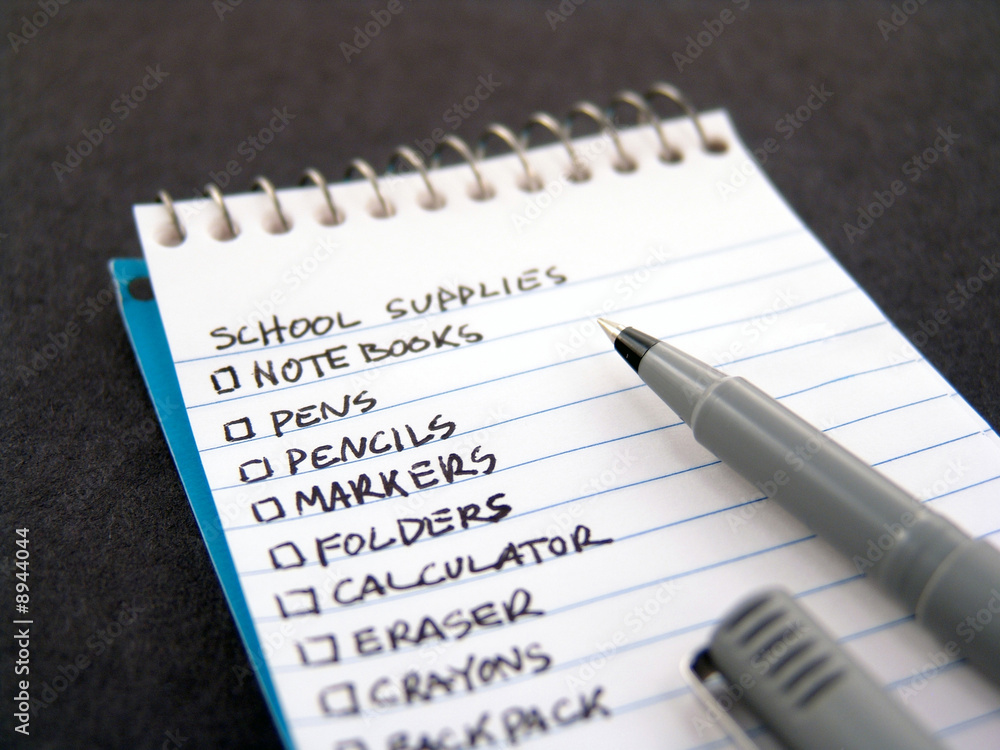 SCHOOL SUPPLIES
NOTEBOOKS
PENS
PENCILS
MARKERS
FOLDERS
CALCULATOR
ERASER
CRAYONS
BACKPACK
Adobe Stock | #8944044